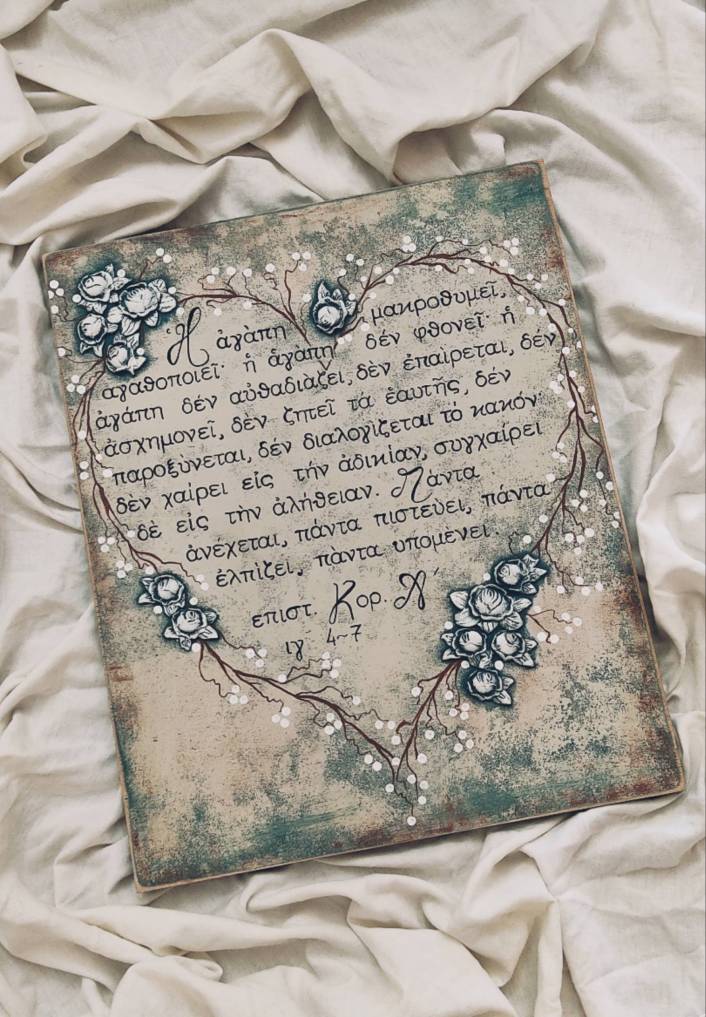 Ἡ ἀγὰπη μακροθυμεῖ,
ἀγαθοποιεῖ· ἡ ἀγάπη δέν φθονεῖ· ἡ
ἀγάπη δέν αὐθαδιὰζει, δὲν ἐπαίρεται, δέν
ἀσχημονεῖ, δὲν ζητεῖ τὰ ἑαυτῆς, δέν
παροξὺνεται, δέν διαλογίζεται τὸ κακόν
δὲν χαίρει εἰς τήν ἀδικίαν, συγχαίρει
δὲ εἰς τὴν ἀλήθειαν. Πάντα
ἀνέχεται, πάντα πιστεύει, πάντα
ἐλπίζει, πὰντα υπομένει.
επιστ. Κορ. Α΄
ιγ΄ 4~7